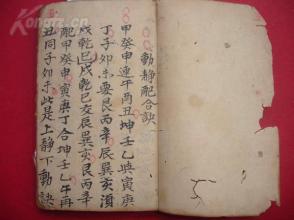 動靜配合訣
甲癸申連午丙丑坤壬乙與寅庚
丁子卯未要艮丙辛辰巽亥須
戌乾巳戌乾巳交辰巽亥艮丙辛
配甲癸申寅庚丁合坤壬乙午再
丑同子卯于此是上靜下動訣